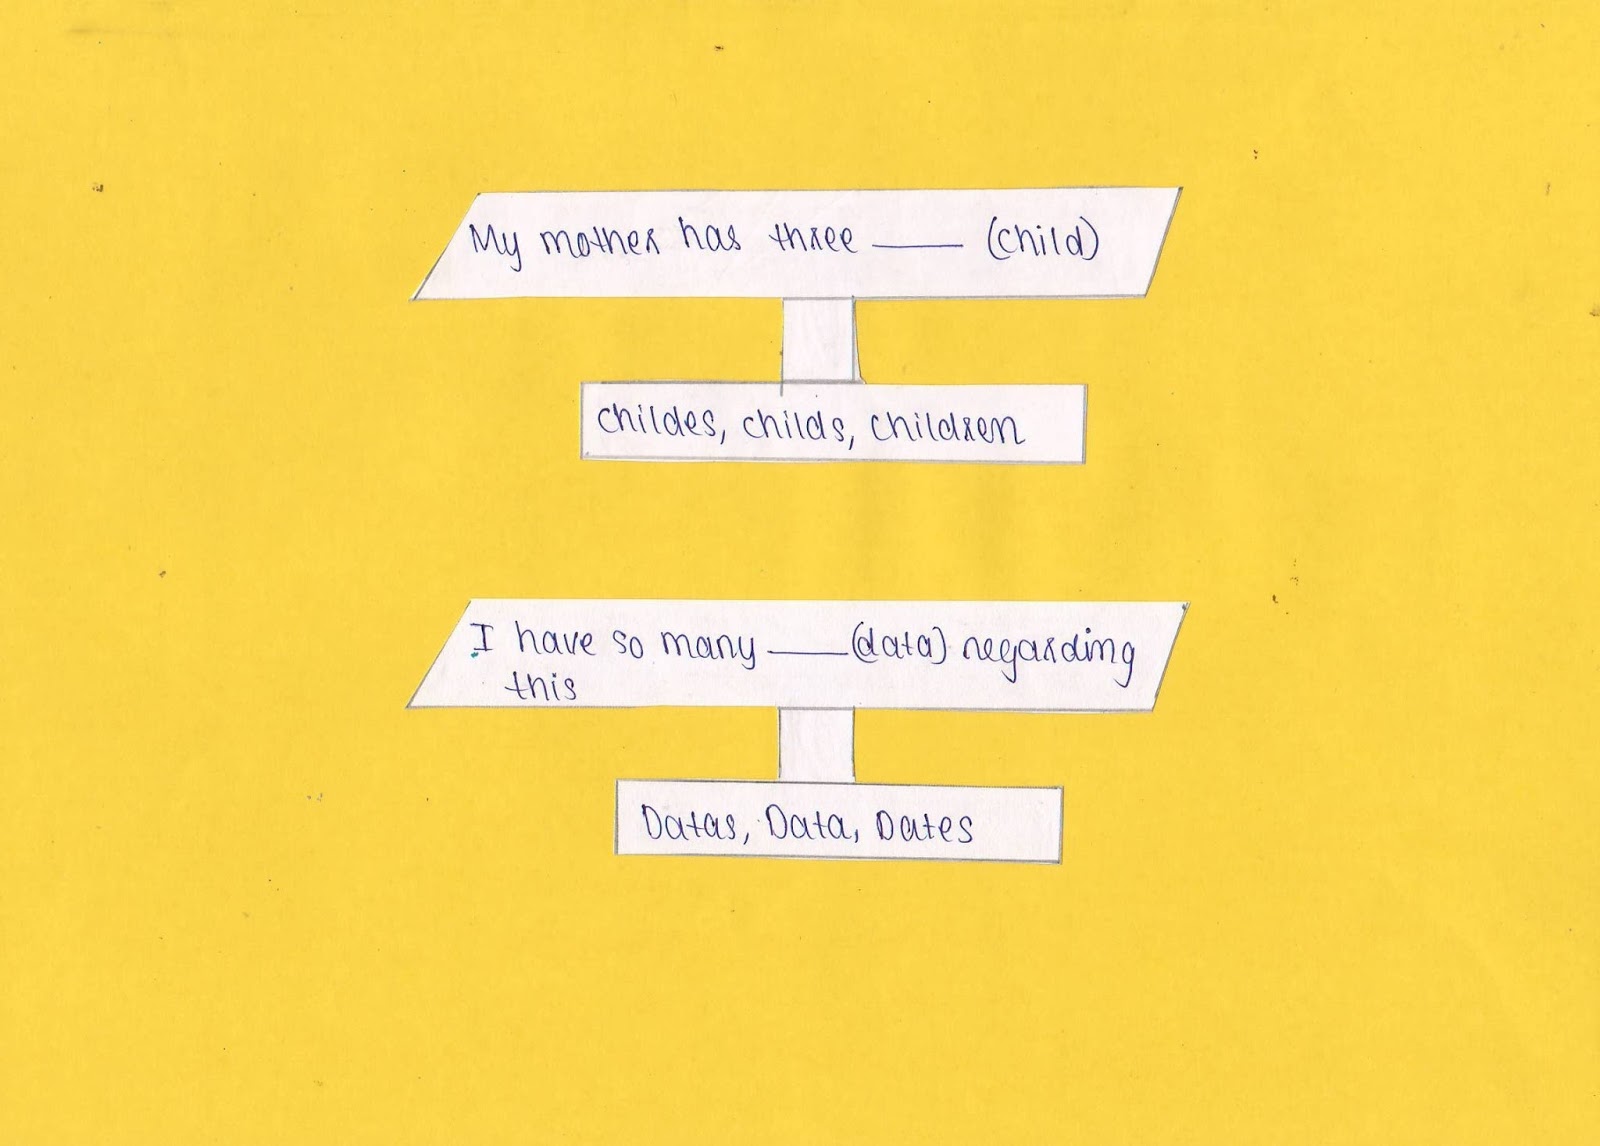 My mother has three ____ (child)
childes, childs, children
I have so many ____ (data) regarding
this
Datas, Data, Dates